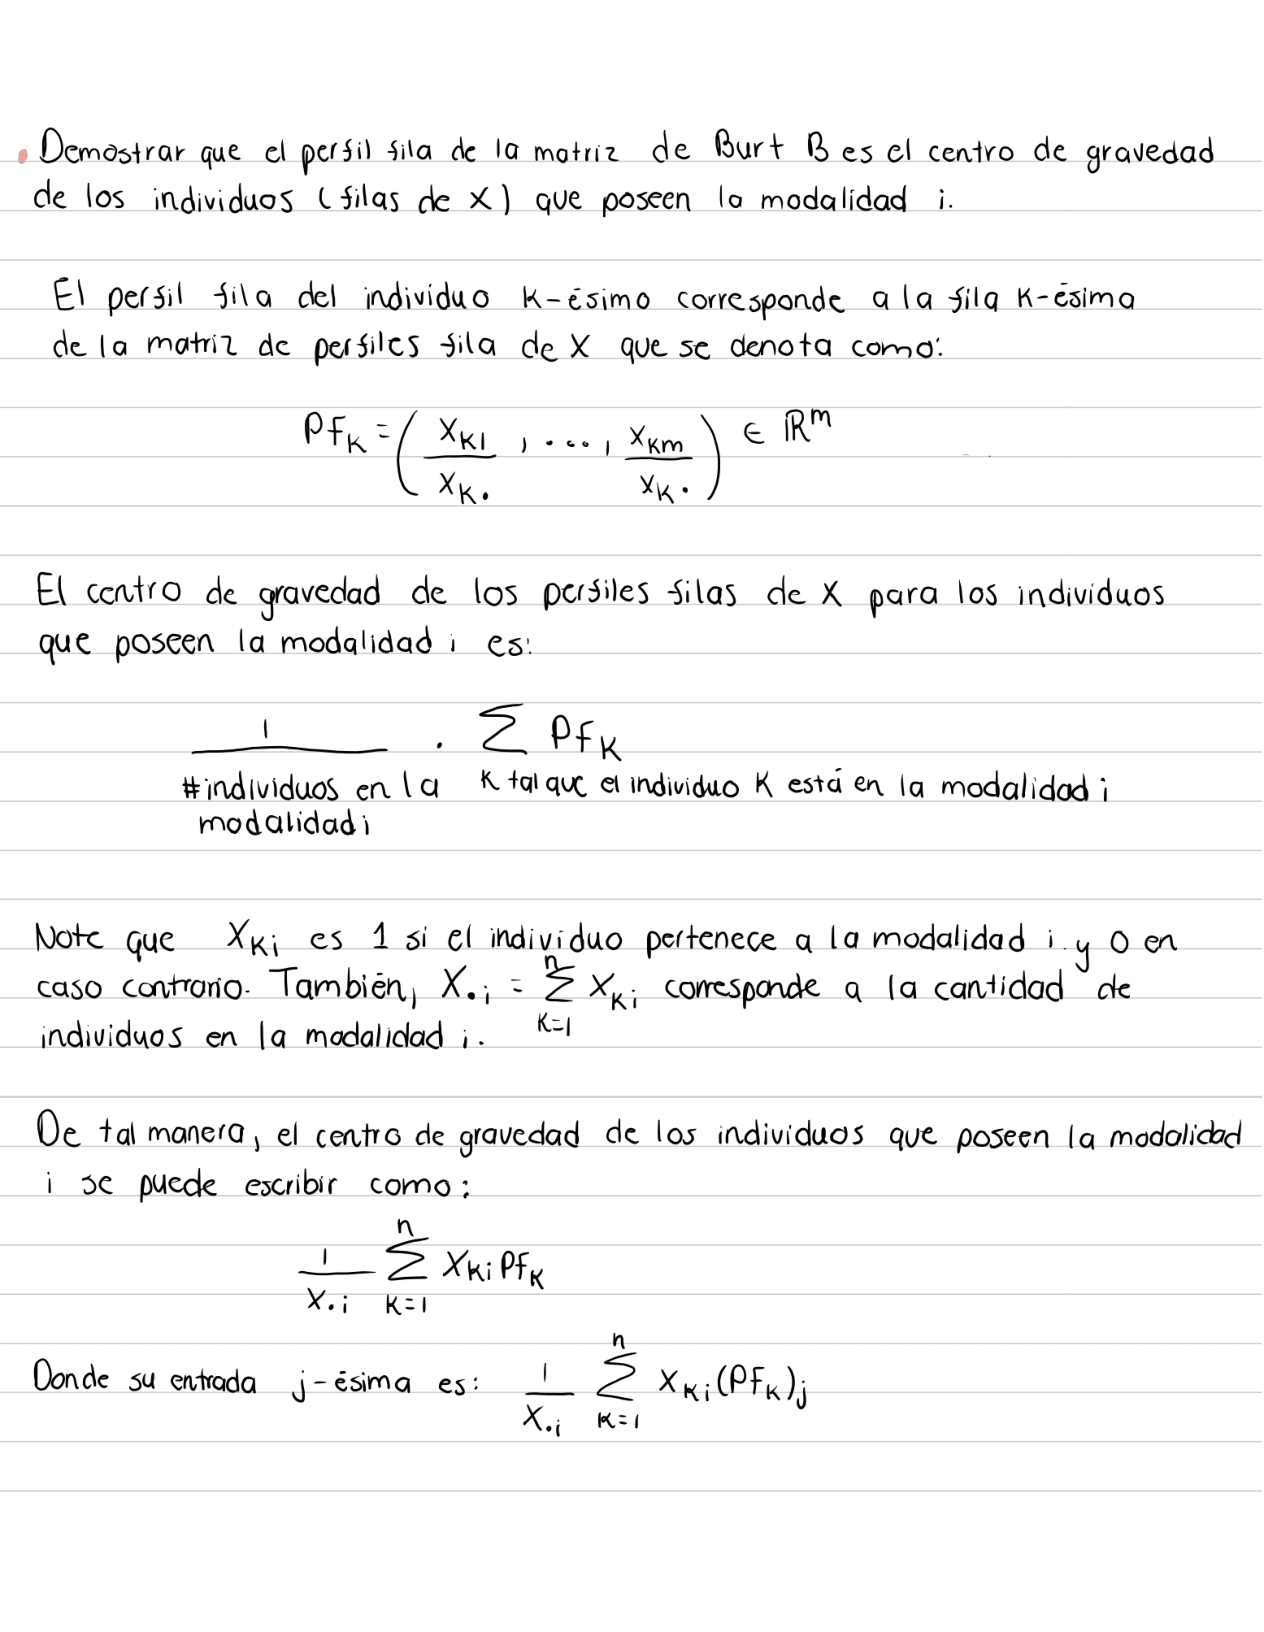 . Demostrar que el perfil fila de la matriz de Burt B es el centro de gravedad
de los individuos (filas de X) que poseen la modalidad i.
El perfil fila del individuo K-ésimo corresponde a la fila K-ésima
de la matriz de perfiles fila de X que se denota como:
Pf_K = ( X_K1 / X_K. , ...., X_Km / X_K. ) ∈ ℝ^m
El centro de gravedad de los perfiles filas de X para los individuos
que poseen la modalidad i es:
1 / #individuos en la modalidad i · Σ_{K tal que el individuo K está en la modalidad i} Pf_K
Note que X_Ki es 1 si el individuo pertenece a la modalidad i. y 0 en
caso contrario. También, X._i = Σ_{K=1}^{n} X_Ki corresponde a la cantidad de
individuos en la modalidad i.
De tal manera, el centro de gravedad de los individuos que poseen la modalidad
i se puede escribir como:
1 / X._i Σ_{K=1}^{n} X_Ki Pf_K
Donde su entrada j-ésima es: 1 / X._i Σ_{K=1}^{n} X_Ki (Pf_K)_j